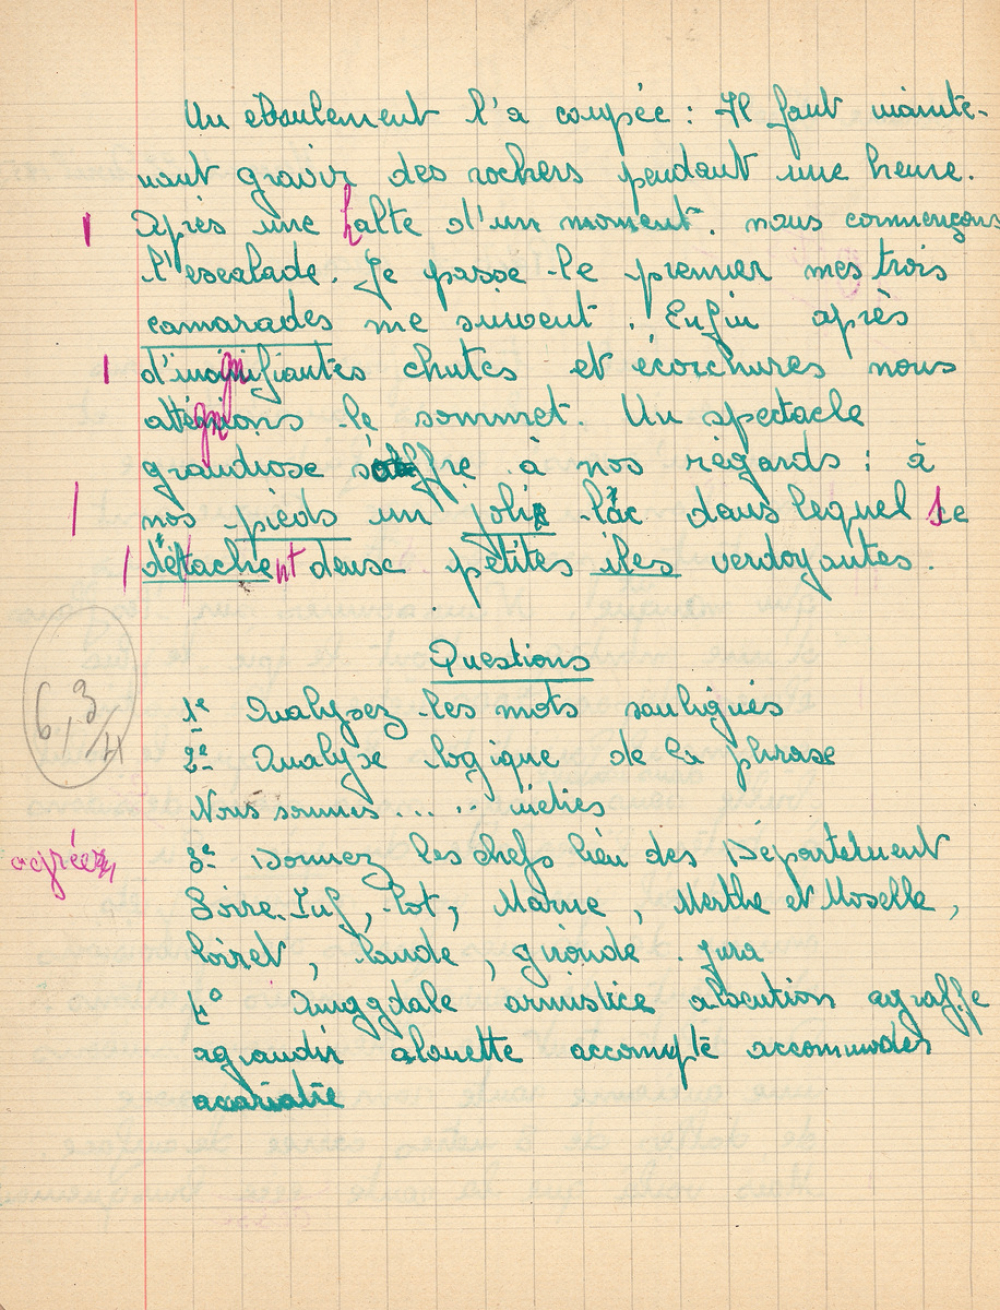 Un eboulement l'a coupée : Il faut mainte-
nant gravir des rochers pendant une heure.
1 Après une halte d'un moment. nous commençons
l'escalade. Je passe le premier mes trois
camarades me suivent. Enfin après
1 d'insignifiantes chutes et écorchures nous
attégnions le sommet. Un spectacle
grandiose s'offre à nos régards : à
1 nos pieds un joli lac dans lequel se
1 détachent deux petites îles verdoyantes.
Questions
6,3/4
1e Analysez les mots soulignés
2e Analyse logique de la phrase
Nous sommes . . . . .
3e Donnez les chefs lieu des Département
agréez
Loire. Inf, Lot, Marne, Merthe et Moselle,
loiret, lande, gironde. jura
4° Amygdale armistice alocution agraffe
agrandir alouette accompte accommodes
acariatre